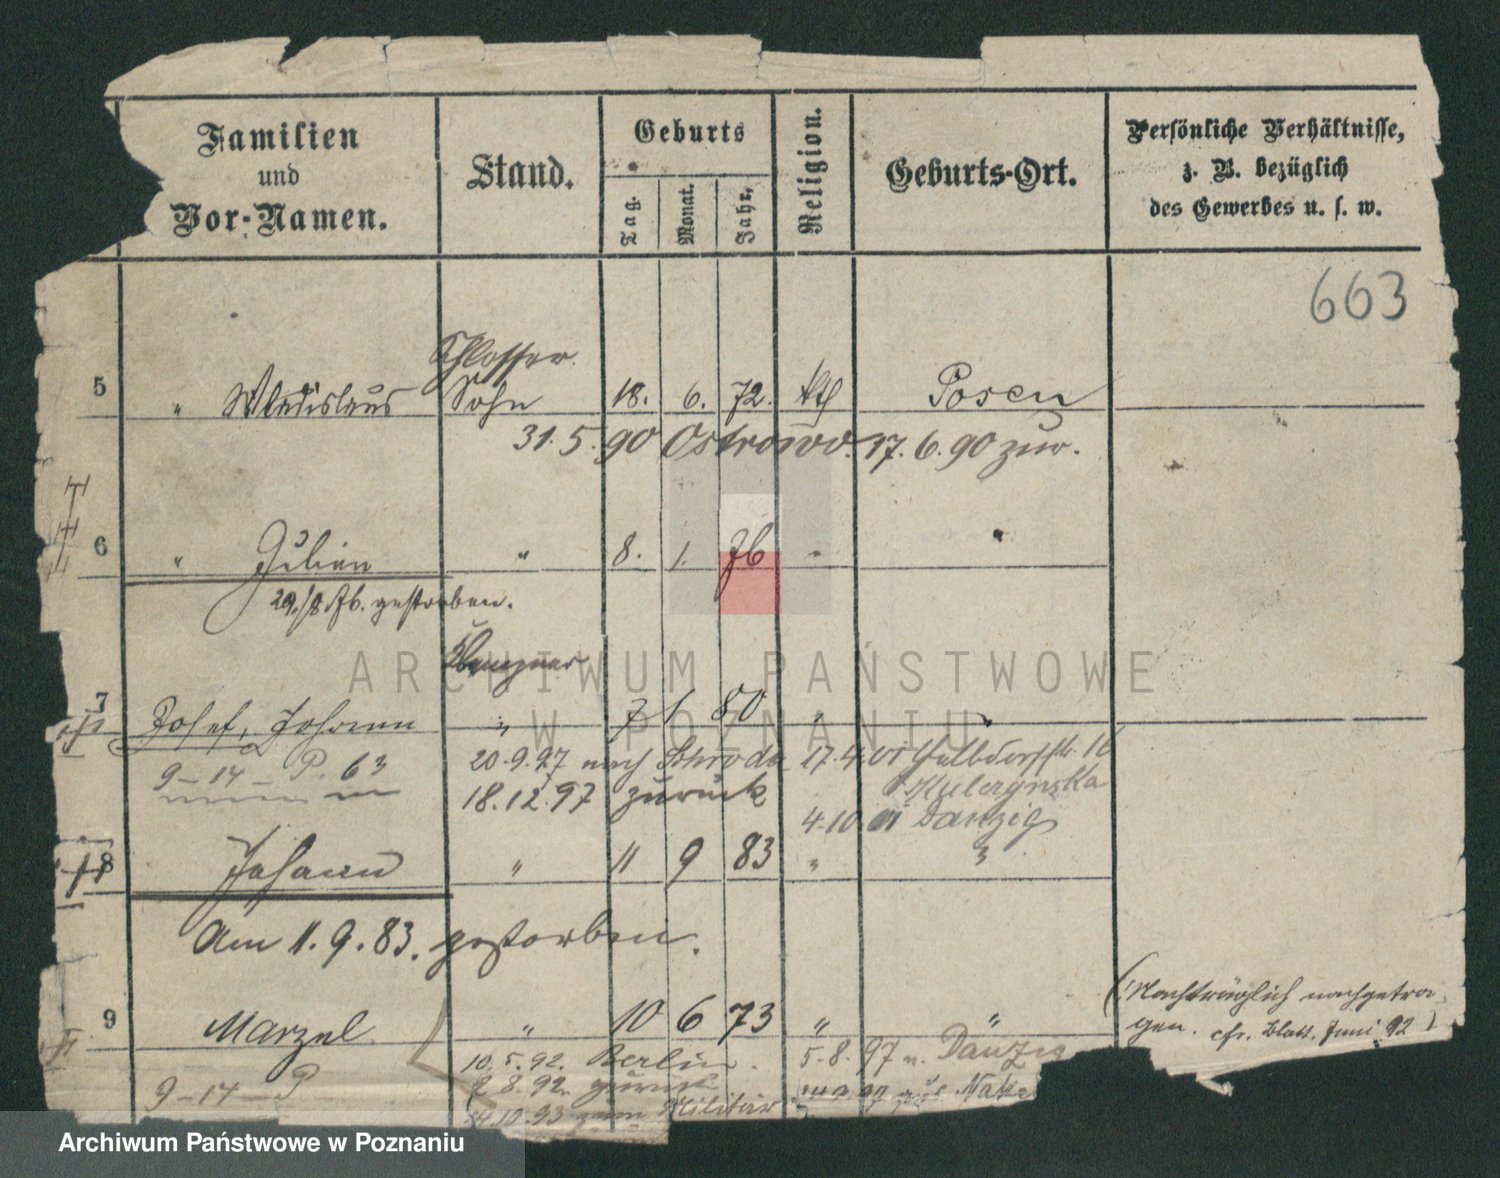 Familien
und
Vor-Namen.
Stand.
Geburts
Tag.
Monat.
Jahr.
Religion.
Geburts-Ort.
Persönliche Verhältnisse,
z. B. bezüglich
des Gewerbes u. s. w.
663
Schlosser
5 " Wladislaus Sohn 18. 6. 72. kth Posen
31.5.90 Ostrowo. 17.6.90 zur.
6 " Julian " 8. 1. 76 " "
29/8 76. gestorben.
Klempner
7 Josef, Johann " 7 1 80 " "
9-14-P. 63
20.9.97 nach Schroda 17.4.01
18.12.97 zurück
4.10.01 Danzig
8 Johann " 11 9 83 " "
Am 11.9.83. gestorben.
9 Marzel " 10 6 73 " "
(Nachträglich nachgetra-
gen. cfr. Blatt. Juni 92)
10.5.92. Berlin. 5.8.97 n. Danzig
8.92. zurück
9-14-P
14.10.93 zum Militär
ARCHIWUM PAŃSTWOWE
W POZNANIU
Archiwum Państwowe w Poznaniu